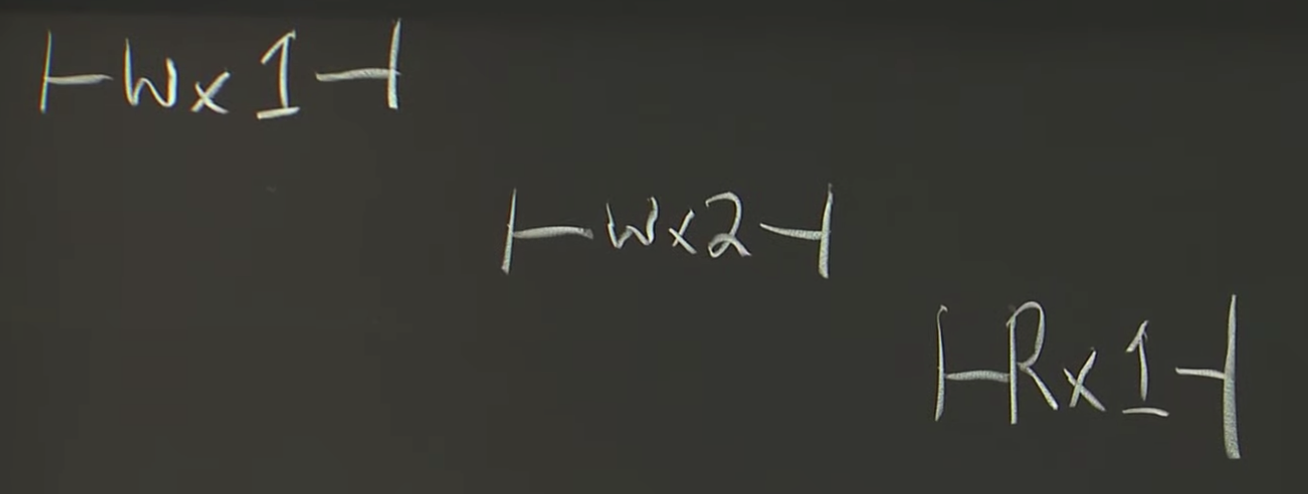 |-Wx1-|
|-Wx2-|
|-Rx1-|